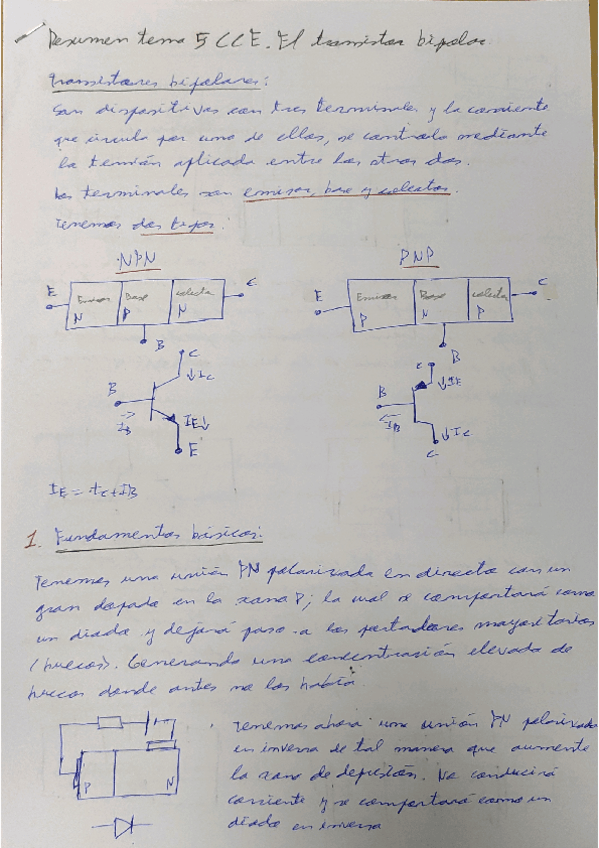 Resumen tema 5 CCE. El transistor bipolar
Transistores bipolares:
Son dispositivos con tres terminales y la corriente
que circula por uno de ellos, se controla mediante
la tensión aplicada entre los otros dos.
Los terminales son emisor, base y colector.
Tenemos dos tipos:
NPN PNP
E Emisor Base colector C E Emisor Base colector C
N P N P N P
B B
C E
B ↓IC B ↓IE
IB IE↓ IB ↓IC
E C
IE = IC + IB
1. Fundamentos básicos:
Tenemos una unión PN polarizada en directo con un
gran dopado en la zona P; la cual se comportará como
un diodo y dejará paso a los portadores mayoritarios
(huecos). Generando una concentración elevada de
huecos donde antes no los había
Tenemos ahora una unión PN polarizada
en inversa de tal manera que aumente
la zona de deplesión. No conducirá
corriente y se comportará como un
diodo en inversa
P N